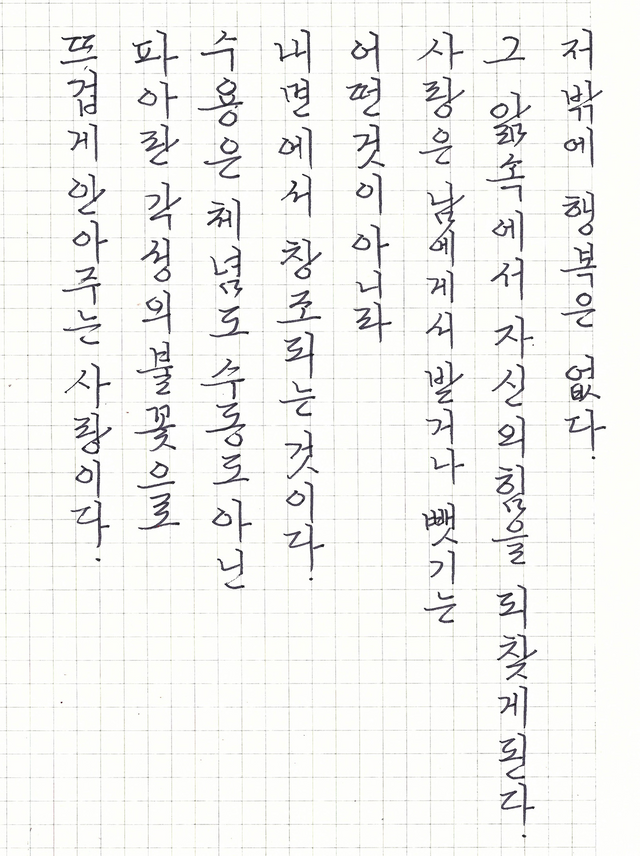 저 밖에 행복은 없다.
그 앎속에서 자신의 힘을 되찾게된다.
사랑은 남에게서 발거나 뺏기는
어떤것이 아니라
내면에서 창조되는 것이다.
수용은 체념도 수동도 아닌
파아란 각성의 불꽃으로
뜨겁게 안아주는 사랑이다.